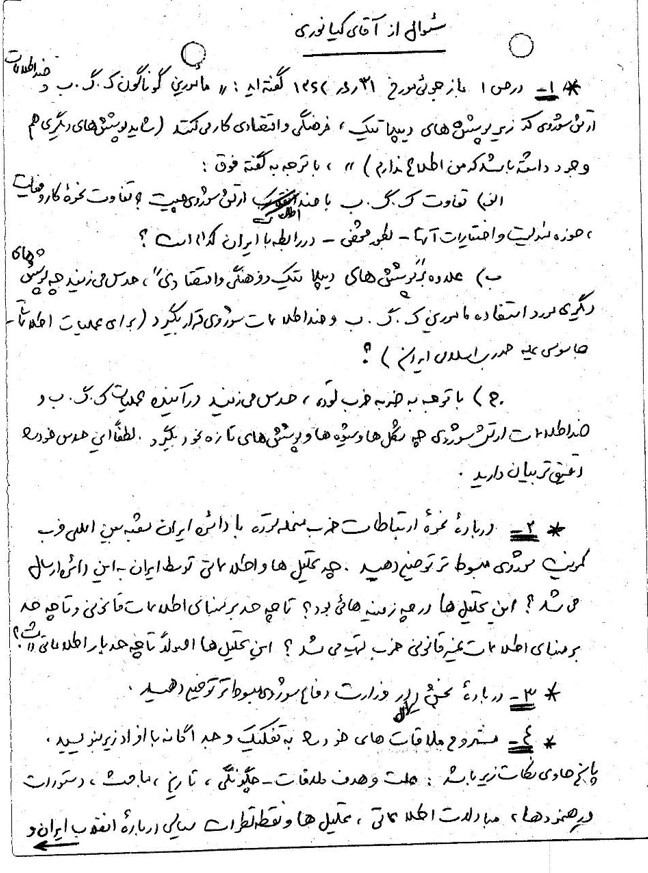 سئوال از آقای کیانوری
* ۱- در ص ۱ بازجوئی مورخ ۳۱/ ۱۳۶۲ گفته اید: " مأمورین گوناگون ک. گ. ب و ضد اطلاعات
ارتش شوروی که زیر پوشش های دیپلماتیک، فرهنگی و اقتصادی کار می کنند (شاید پوشش های دیگری هم
وجود داشته باشد که من اطلاع ندارم) "، با توجه به گفته فوق:
الف) تفاوت ک. گ. ب با ضد اطلاعات ارتش شوروی چیست؟ تفاوت نحوۀ کار و فعالیت
، حوزه مسئولیت و اختیارات آنها - بطور مشخص - در رابطه با ایران کدام است؟
ب) علاوه بر "پوشش های دیپلماتیک و فرهنگی و اقتصادی"، حدس می زنید چه پوشش های
دیگری مورد استفاده مأمورین ک. گ. ب و ضد اطلاعات شوروی قرار بگیرد (برای عملیات اطلاعاتی -
جاسوسی علیه جمهوری اسلامی ایران)؟
ج) با توجه به ضربه حزب توده، حدس می زنید در آینده عملیات ک. گ. ب و
ضد اطلاعات ارتش شوروی چه شکل ها و شیوه ها و پوشش های تازه بخود بگیرد. لطفاً این حدس خود را
دقیق تر بیان دارید.
* ۲- دربارۀ نحوۀ ارتباطات حزب منحله توده با دائرۀ ایران شعبه بین المللی حزب
کمونیست شوروی مبسوط تر توضیح دهید. چه تحلیل ها و اطلاعاتی توسط ایران به این دائره ارسال
می شد؟ این تحلیل ها در چه زمینه هائی بود؟ تا چه حد بر مبنای اطلاعات قانونی و تا چه حد
بر مبنای اطلاعات غیر قانونی حزب تهیه می شد؟ این تحلیل ها اصولاً تا چه حد بار اطلاعاتی داشت؟
* ۳- دربارۀ بخش وزارت دفاع شوروی مبسوط تر توضیح دهید.
* ۴- مشروح ملاقات های خود را به تفکیک و جداگانه با افراد زیر بنویسید.
پاسخ حاوی نکات زیر باشد: علت و هدف ملاقات - چگونگی، تاریخ، مباحث، دستورات
و رهنمودها، مبادلات اطلاعاتی، تحلیل ها و نقطه نظرات سیاسی دربارۀ انقلاب ایران و